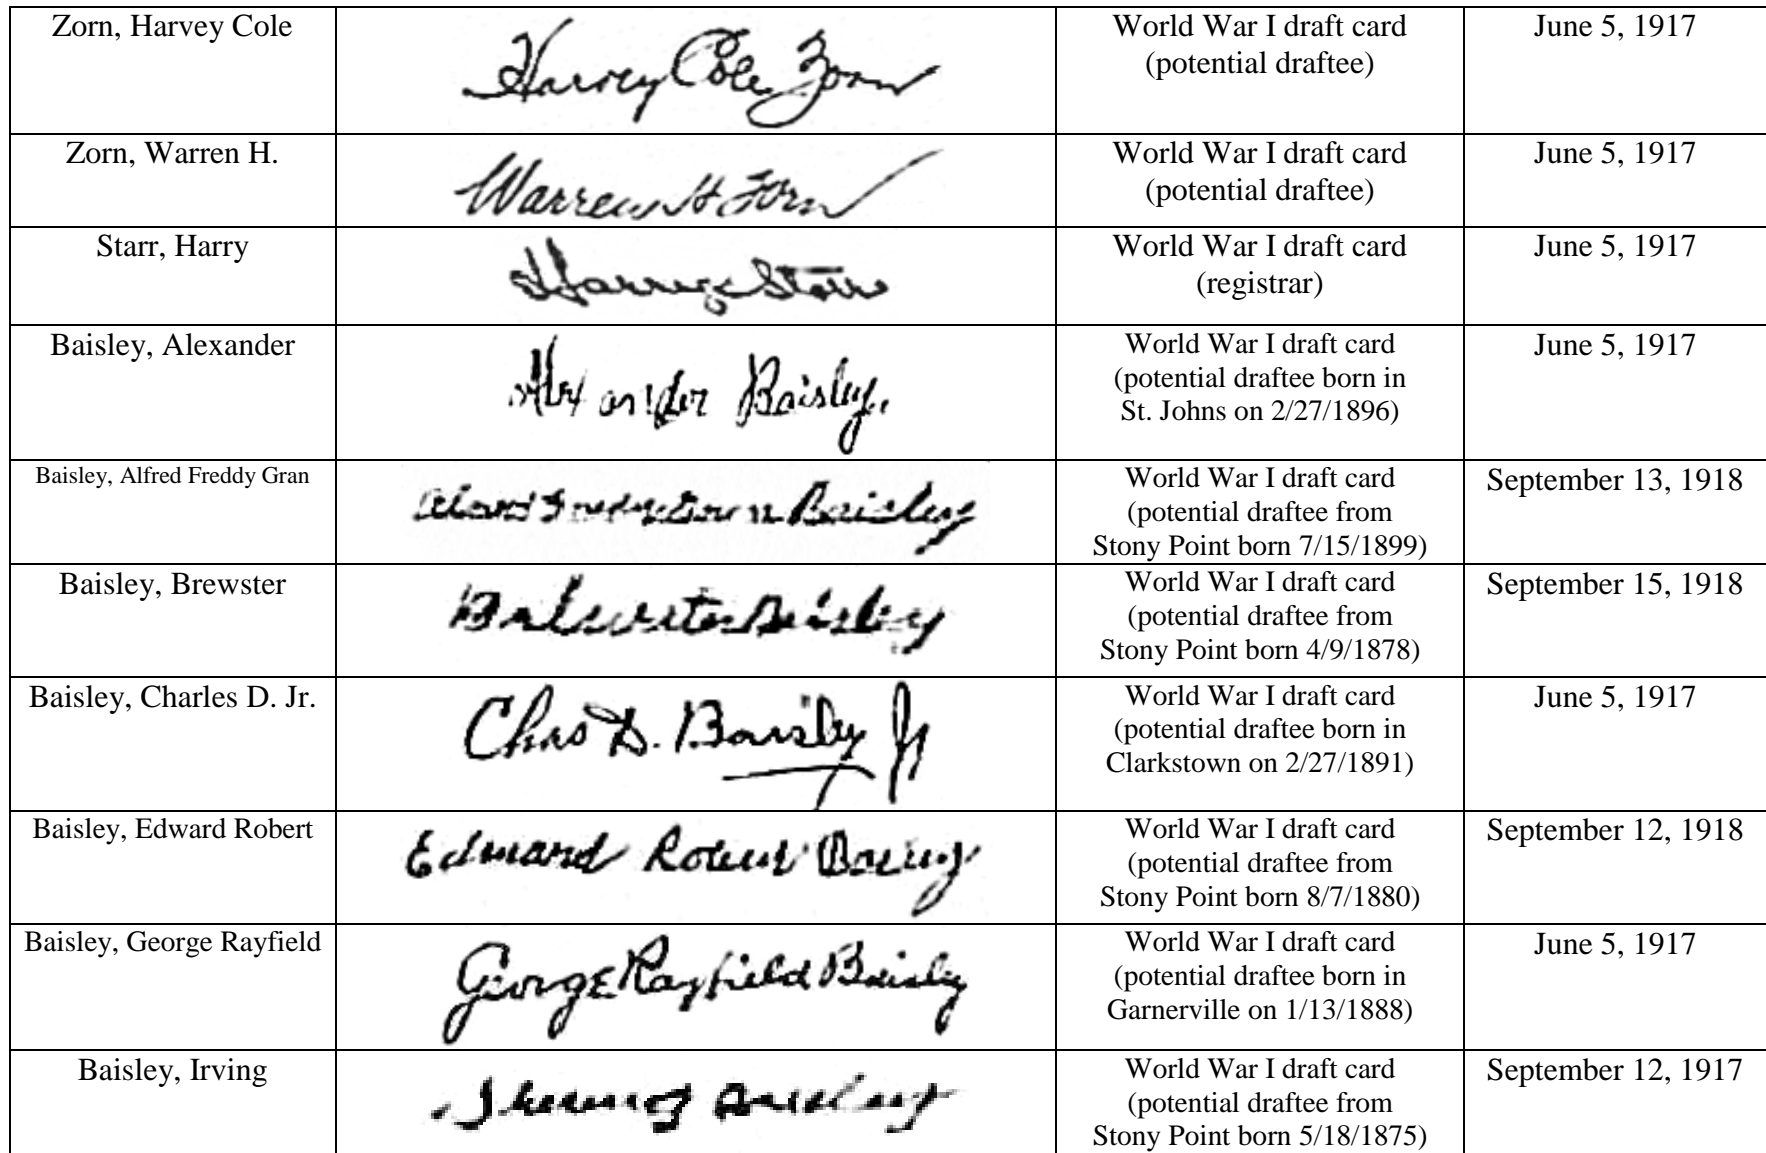 Zorn, Harvey Cole
Harvey Cole Zorn
World War I draft card
(potential draftee)
June 5, 1917
Zorn, Warren H.
Warren H Zorn
World War I draft card
(potential draftee)
June 5, 1917
Starr, Harry
Harry Starr
World War I draft card
(registrar)
June 5, 1917
Baisley, Alexander
Alexander Baisley.
World War I draft card
(potential draftee born in
St. Johns on 2/27/1896)
June 5, 1917
Baisley, Alfred Freddy Gran
Baisley
World War I draft card
(potential draftee from
Stony Point born 7/15/1899)
September 13, 1918
Baisley, Brewster
Baisley
World War I draft card
(potential draftee from
Stony Point born 4/9/1878)
September 15, 1918
Baisley, Charles D. Jr.
Chas D. Baisley Jr
World War I draft card
(potential draftee born in
Clarkstown on 2/27/1891)
June 5, 1917
Baisley, Edward Robert
Edward Robert
World War I draft card
(potential draftee from
Stony Point born 8/7/1880)
September 12, 1918
Baisley, George Rayfield
George Rayfield Baisley
World War I draft card
(potential draftee born in
Garnerville on 1/13/1888)
June 5, 1917
Baisley, Irving
World War I draft card
(potential draftee from
Stony Point born 5/18/1875)
September 12, 1917